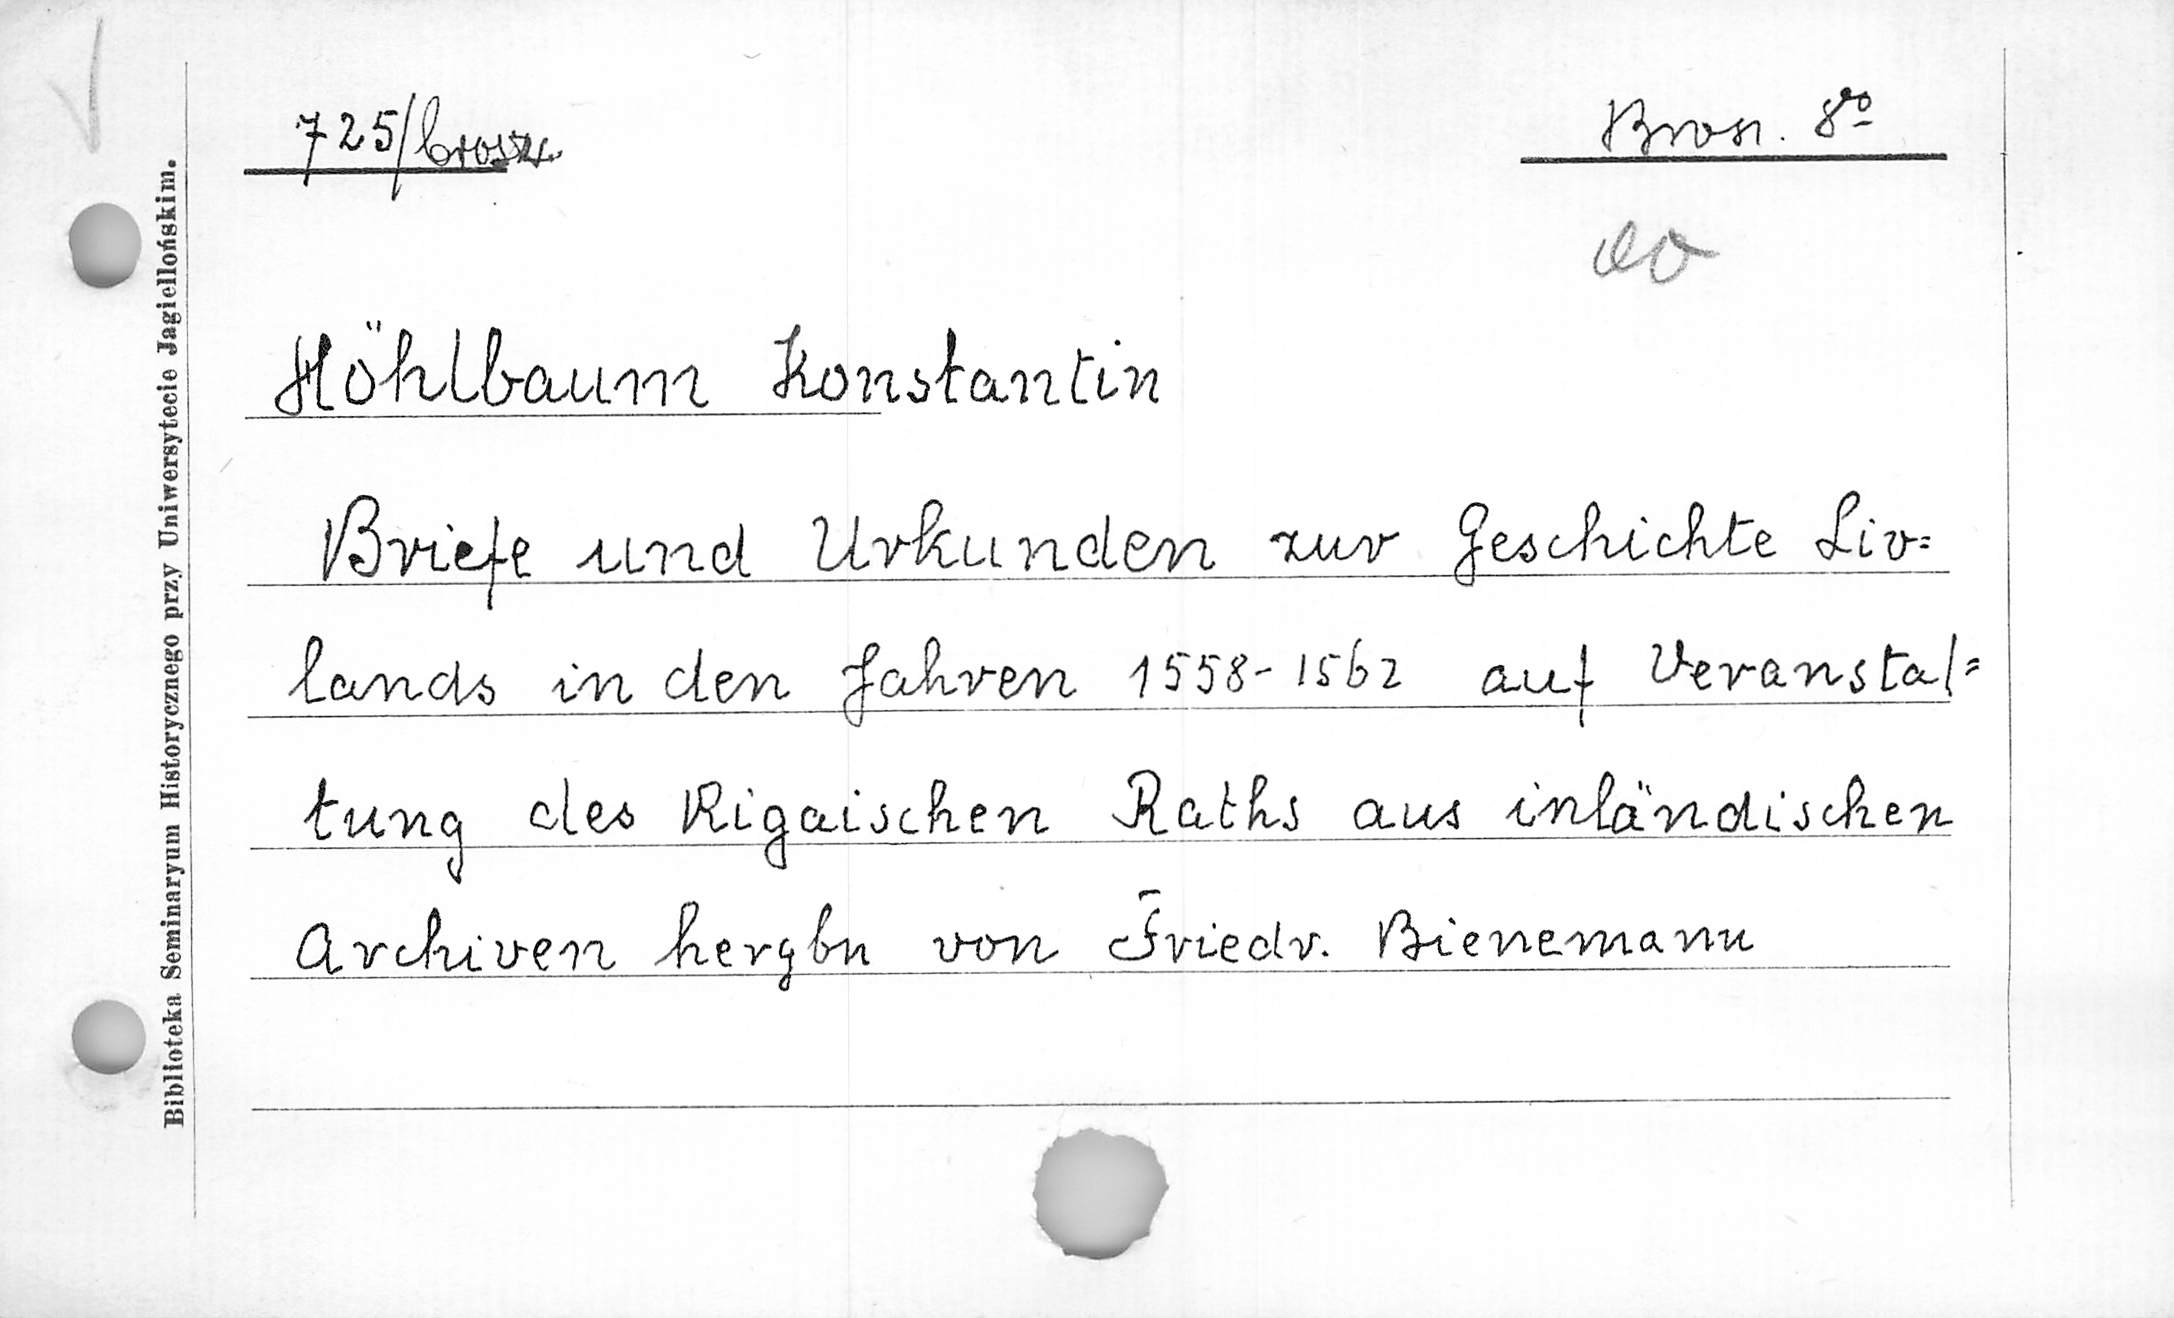 725/brosz. Bros. 8vo
Höhlbaum Konstantin
Briefe und Urkunden zur Geschichte Liv=
lands in den Jahren 1558-1562 auf Veranstal=
tung des Rigaischen Raths aus inländischen
Archiven hergbn von Friedr. Bienemann
Biblioteka Seminaryum Historycznego przy Uniwersytecie Jagiellońskim.